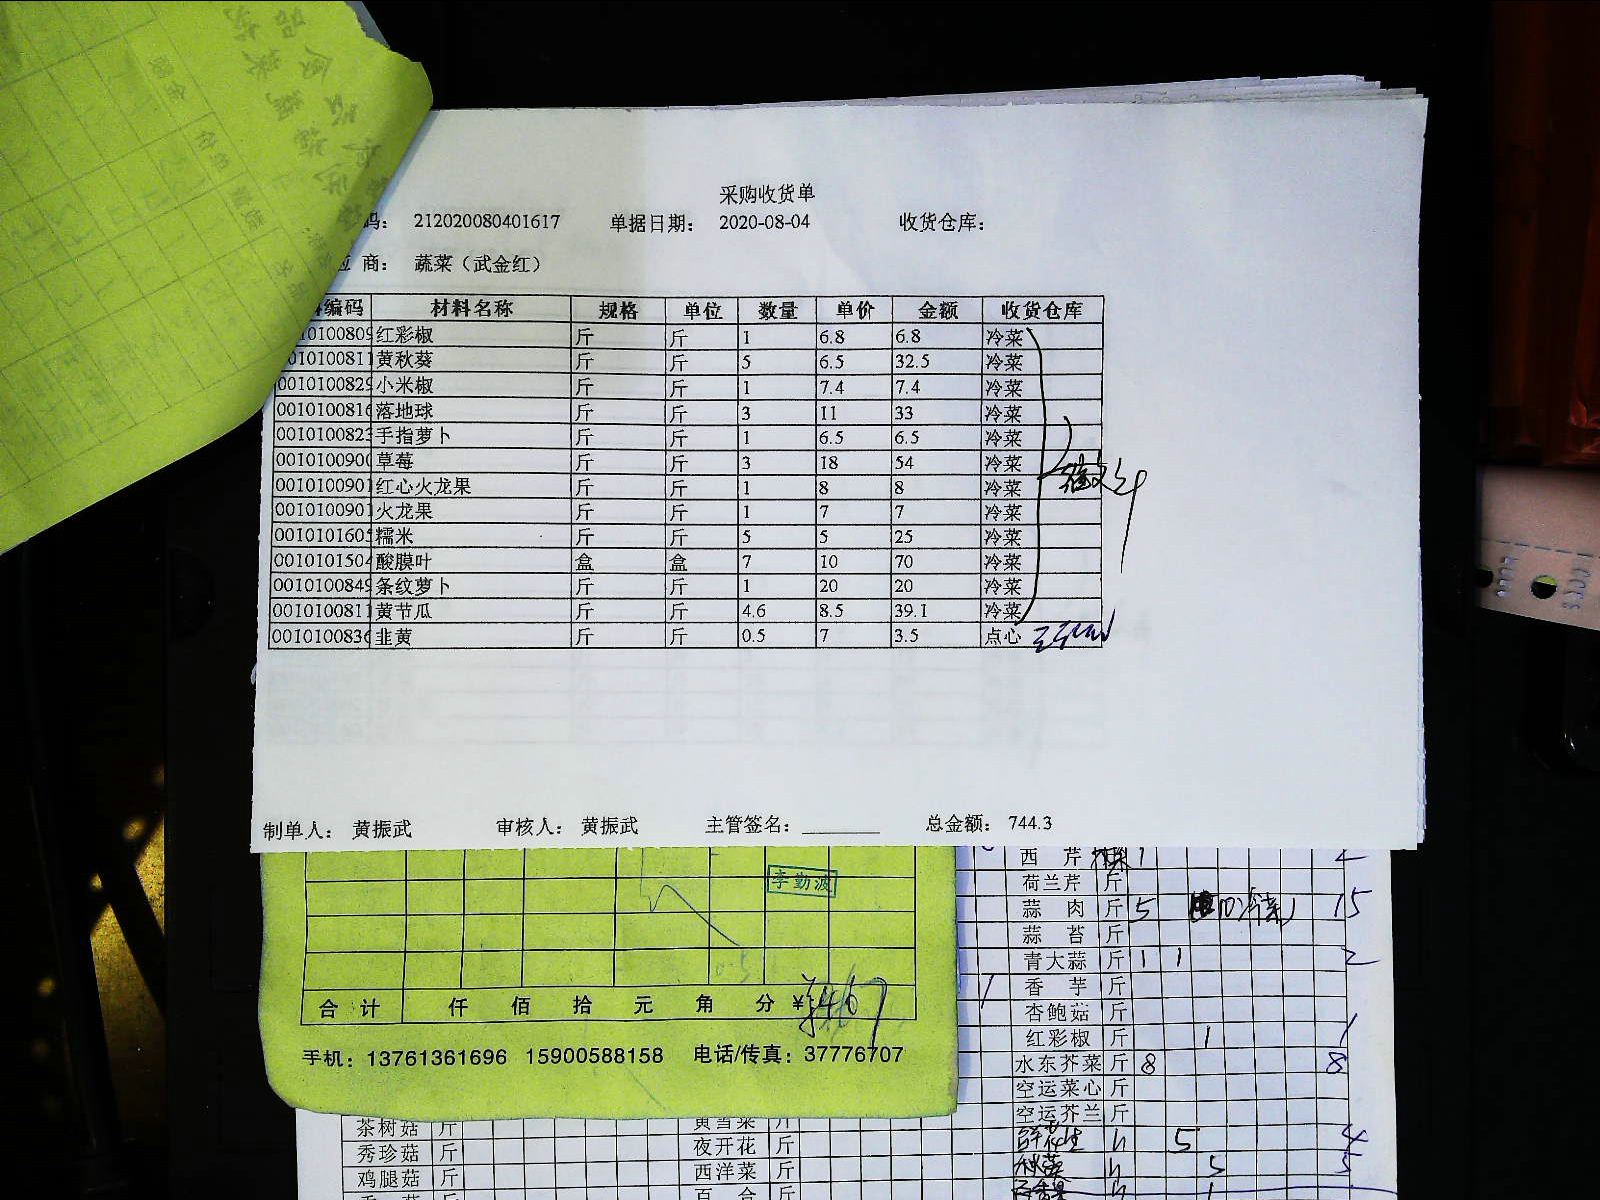 采购收货单
码： 212020080401617 单据日期： 2020-08-04 收货仓库：
商： 蔬菜（武金红）
编码 材料名称 规格 单位 数量 单价 金额 收货仓库
10100809 红彩椒 斤 斤 1 6.8 6.8 冷菜
010100811 黄秋葵 斤 斤 5 6.5 32.5 冷菜
0010100829 小米椒 斤 斤 1 7.4 7.4 冷菜
0010100816 落地球 斤 斤 3 11 33 冷菜
0010100823 手指萝卜 斤 斤 1 6.5 6.5 冷菜
001010090 草莓 斤 斤 3 18 54 冷菜
001010090 红心火龙果 斤 斤 1 8 8 冷菜
001010090 火龙果 斤 斤 1 7 7 冷菜
001010160 糯米 斤 斤 5 5 25 冷菜
001010150 酸膜叶 盒 盒 7 10 70 冷菜
0010100849 条纹萝卜 斤 斤 1 20 20 冷菜
0010100811 黄节瓜 斤 斤 4.6 8.5 39.1 冷菜
0010100836 韭黄 斤 斤 0.5 7 3.5 点心
制单人： 黄振武 审核人： 黄振武 主管签名： 总金额： 744.3
李勤波
合计 仟 佰 拾 元 角 分 ¥467
手机：13761361696 15900588158 电话/传真：37776707
西芹 1 2
荷兰芹 斤
蒜肉 斤 5 15
蒜苔 斤
青大蒜 斤 1 1 2
香芋 斤
杏鲍菇 斤
红彩椒 斤 1 1
水东芥菜 斤 8 8
空运菜心 斤
空运芥兰 斤
茶树菇 斤 黄雪菜 斤
秀珍菇 斤 夜开花 斤
鸡腿菇 斤 西洋菜 斤
百合 斤